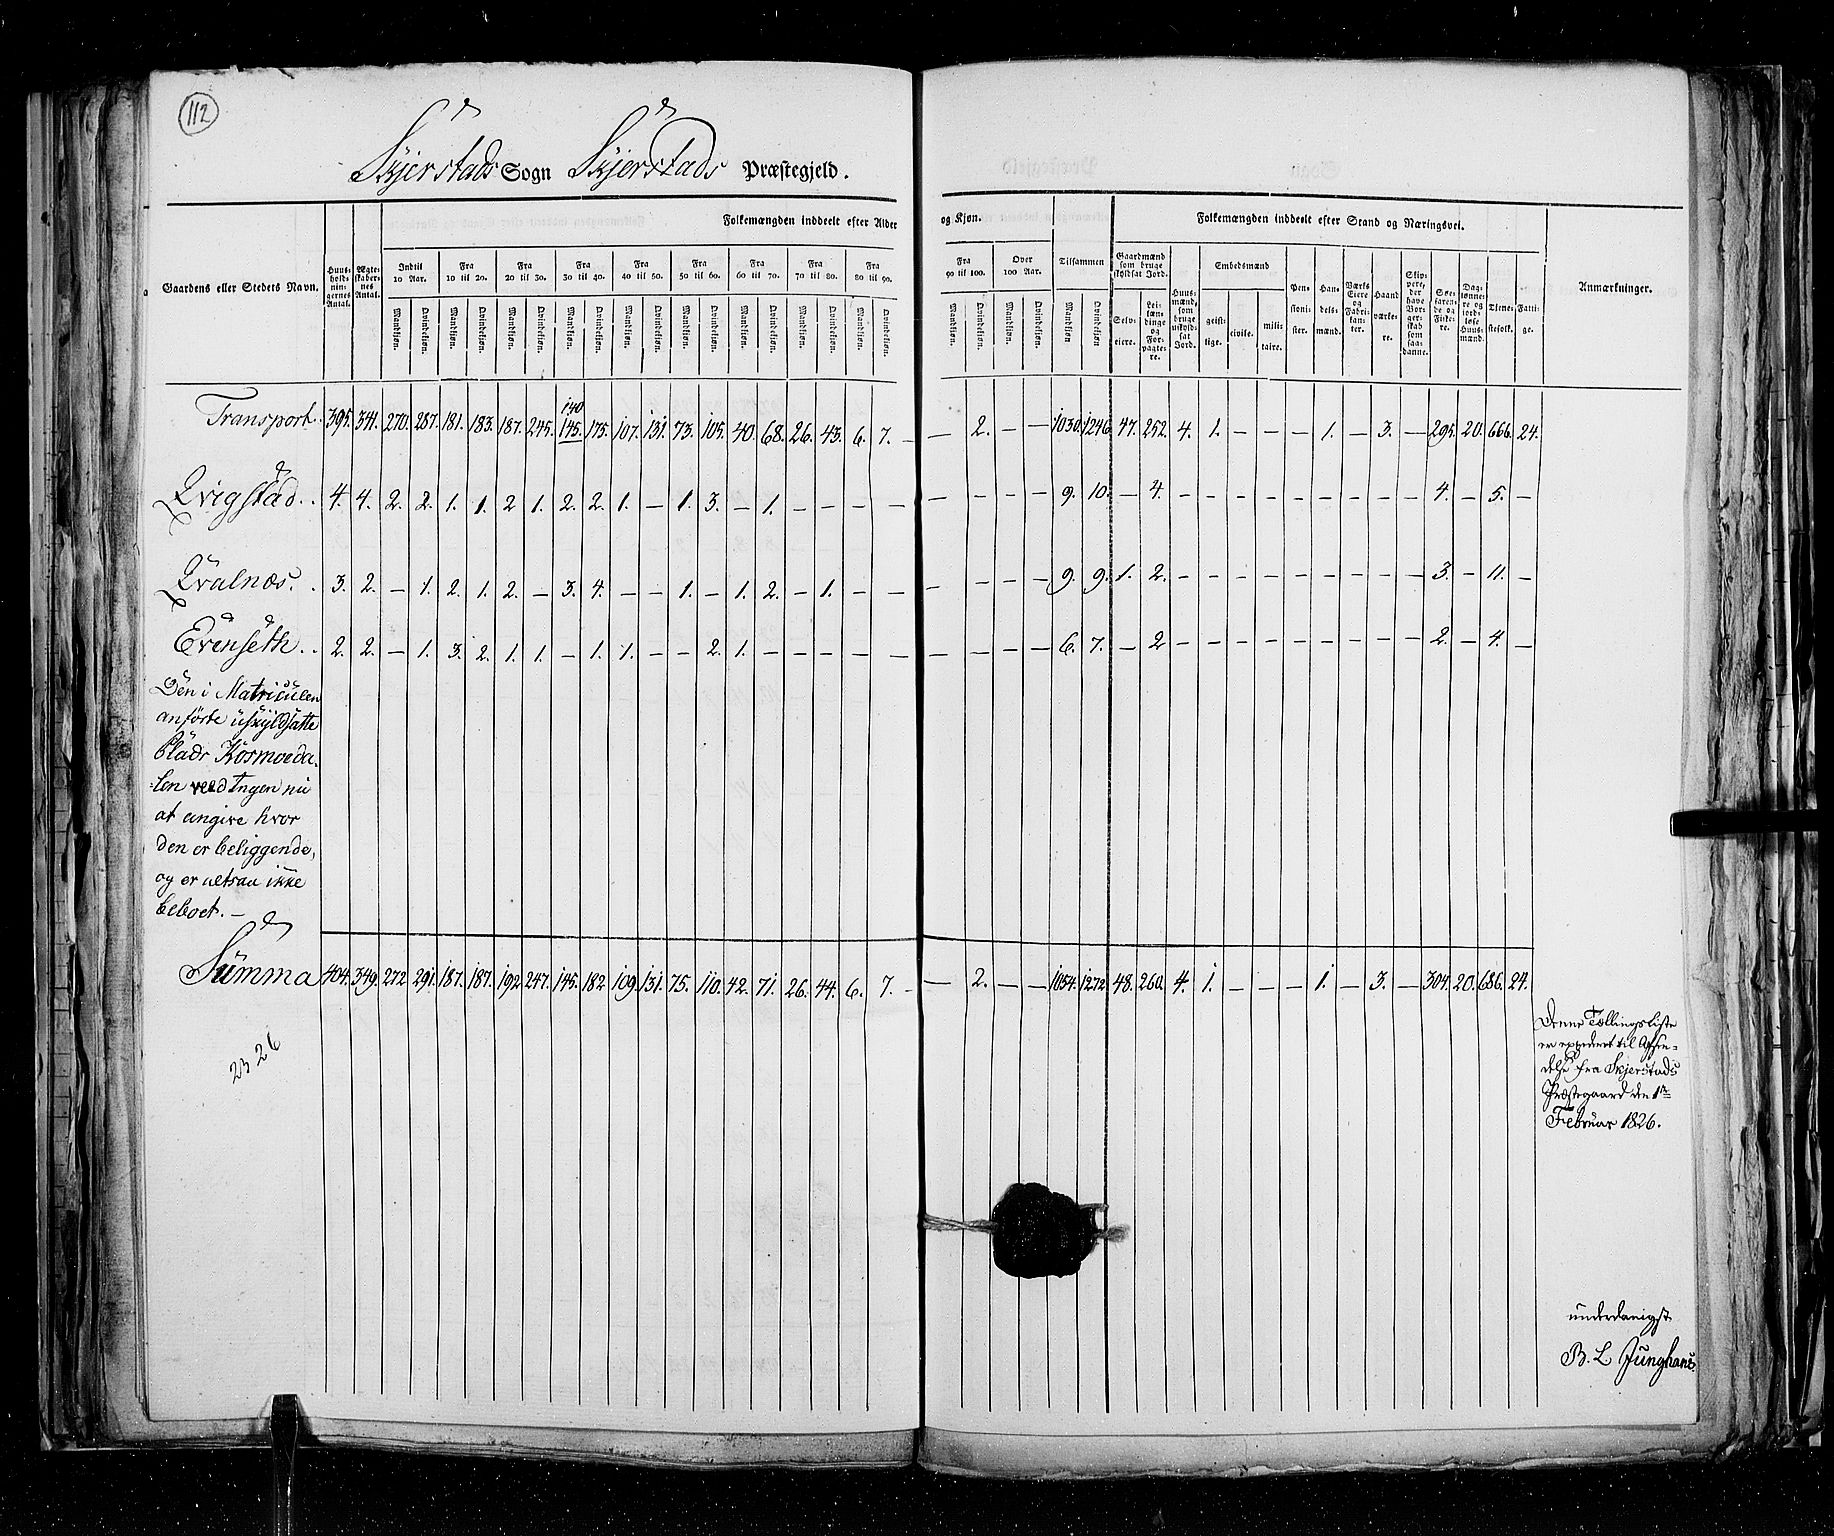 112
Skjerstads Sogn Skjerstads Præstegjeld.
Gaardens eller Stedets Navn. Huus-holdningernes Antal. Ægteskabernes Antal. Folkemængden inddeelt efter Alder og Kjøn. Tilsammen Folkemængden inddeelt efter Stand og Næringsvei. Anmærkninger.
Indtil 10 Aar. Fra 10 til 20. Fra 20 til 30. Fra 30 til 40. Fra 40 til 50. Fra 50 til 60. Fra 60 til 70. Fra 70 til 80. Fra 80 til 90. Fra 90 til 100. Over 100 Aar.
Gaardmænd som bruge skyldsat Jord. Huusmænd, som bruge uskyldsat Jord. Embedsmænd Pensionister. Handelsmænd. Værks Eiere og Fabrikanter. Haandværkere. Skippere, der have Borgerskab som saadanne. Søefarende og Fiskere. Daglønnere og jordløse Huusmænd. Tienestefolk. Fattige.
Mandkjøn. Qvindekjøn. Mandkjøn. Qvindekjøn. Mandkjøn. Qvindekjøn. Mandkjøn. Qvindekjøn. Mandkjøn. Qvindekjøn. Mandkjøn. Qvindekjøn. Mandkjøn. Qvindekjøn. Mandkjøn. Qvindekjøn. Mandkjøn. Qvindekjøn. Mandkjøn. Qvindekjøn. Mandkjøn. Qvindekjøn. Mandkjøn Qvindekjøn Selveiere. Leilændinge og Forpagtere. geistlige. civile. militaire.
140
Transport. 395. 341. 270. 287. 181. 183. 187. 245. 145. 175. 107. 131. 73. 105. 40. 68. 26. 43. 6. 7. – – 2. – – 1030. 1246. 47. 252. 4. 1. – – – 1. – 3. – 295. 20. 666. 24.
Qvigstad. . 4. 4. 2. 2. 1. 1. 2 1. 2. 2. 1. – 1. 3. – 1. – – – – – – – – 9. 10. – 4. – – – – – – – – – 4. – 5. –
Qvalnæs. . 3. 2. – 1. 2. 1. 2. – 3. 4. – – 1. – 1. 2. – 1. – – – – – – 9. 9. 1. 2. – – – – – – – – – 3. – 11. –
Evenseth. . 2. 2. – 1. 3. 2. 1. 1. – 1. 1. – – 2. 1. – – – – – – – – – 6. 7. – 2 – – – – – – – – – 2. – 4. –
Den i Matriculen
anførte uskyldsatte
Plads Kosmoeda-
len veed Ingen nu
at angive hvor
den er beliggende,
og er altsaa ikke
beboet. –
Summa 404. 349. 272 291. 187. 187. 192 247. 145. 182. 109. 131. 75. 110. 42. 71. 26. 44. 6. 7. – – 2. – – 1054. 1272 48. 260. 4. 1. – – – 1. – 3. – 304. 20. 686. 24.
2326
Denne Tællingsliste
er expederet til Afsen-
delse fra Skjerstads
Præstegaard den 1ste
Februar 1826.
underdanigst
B. L Junghans